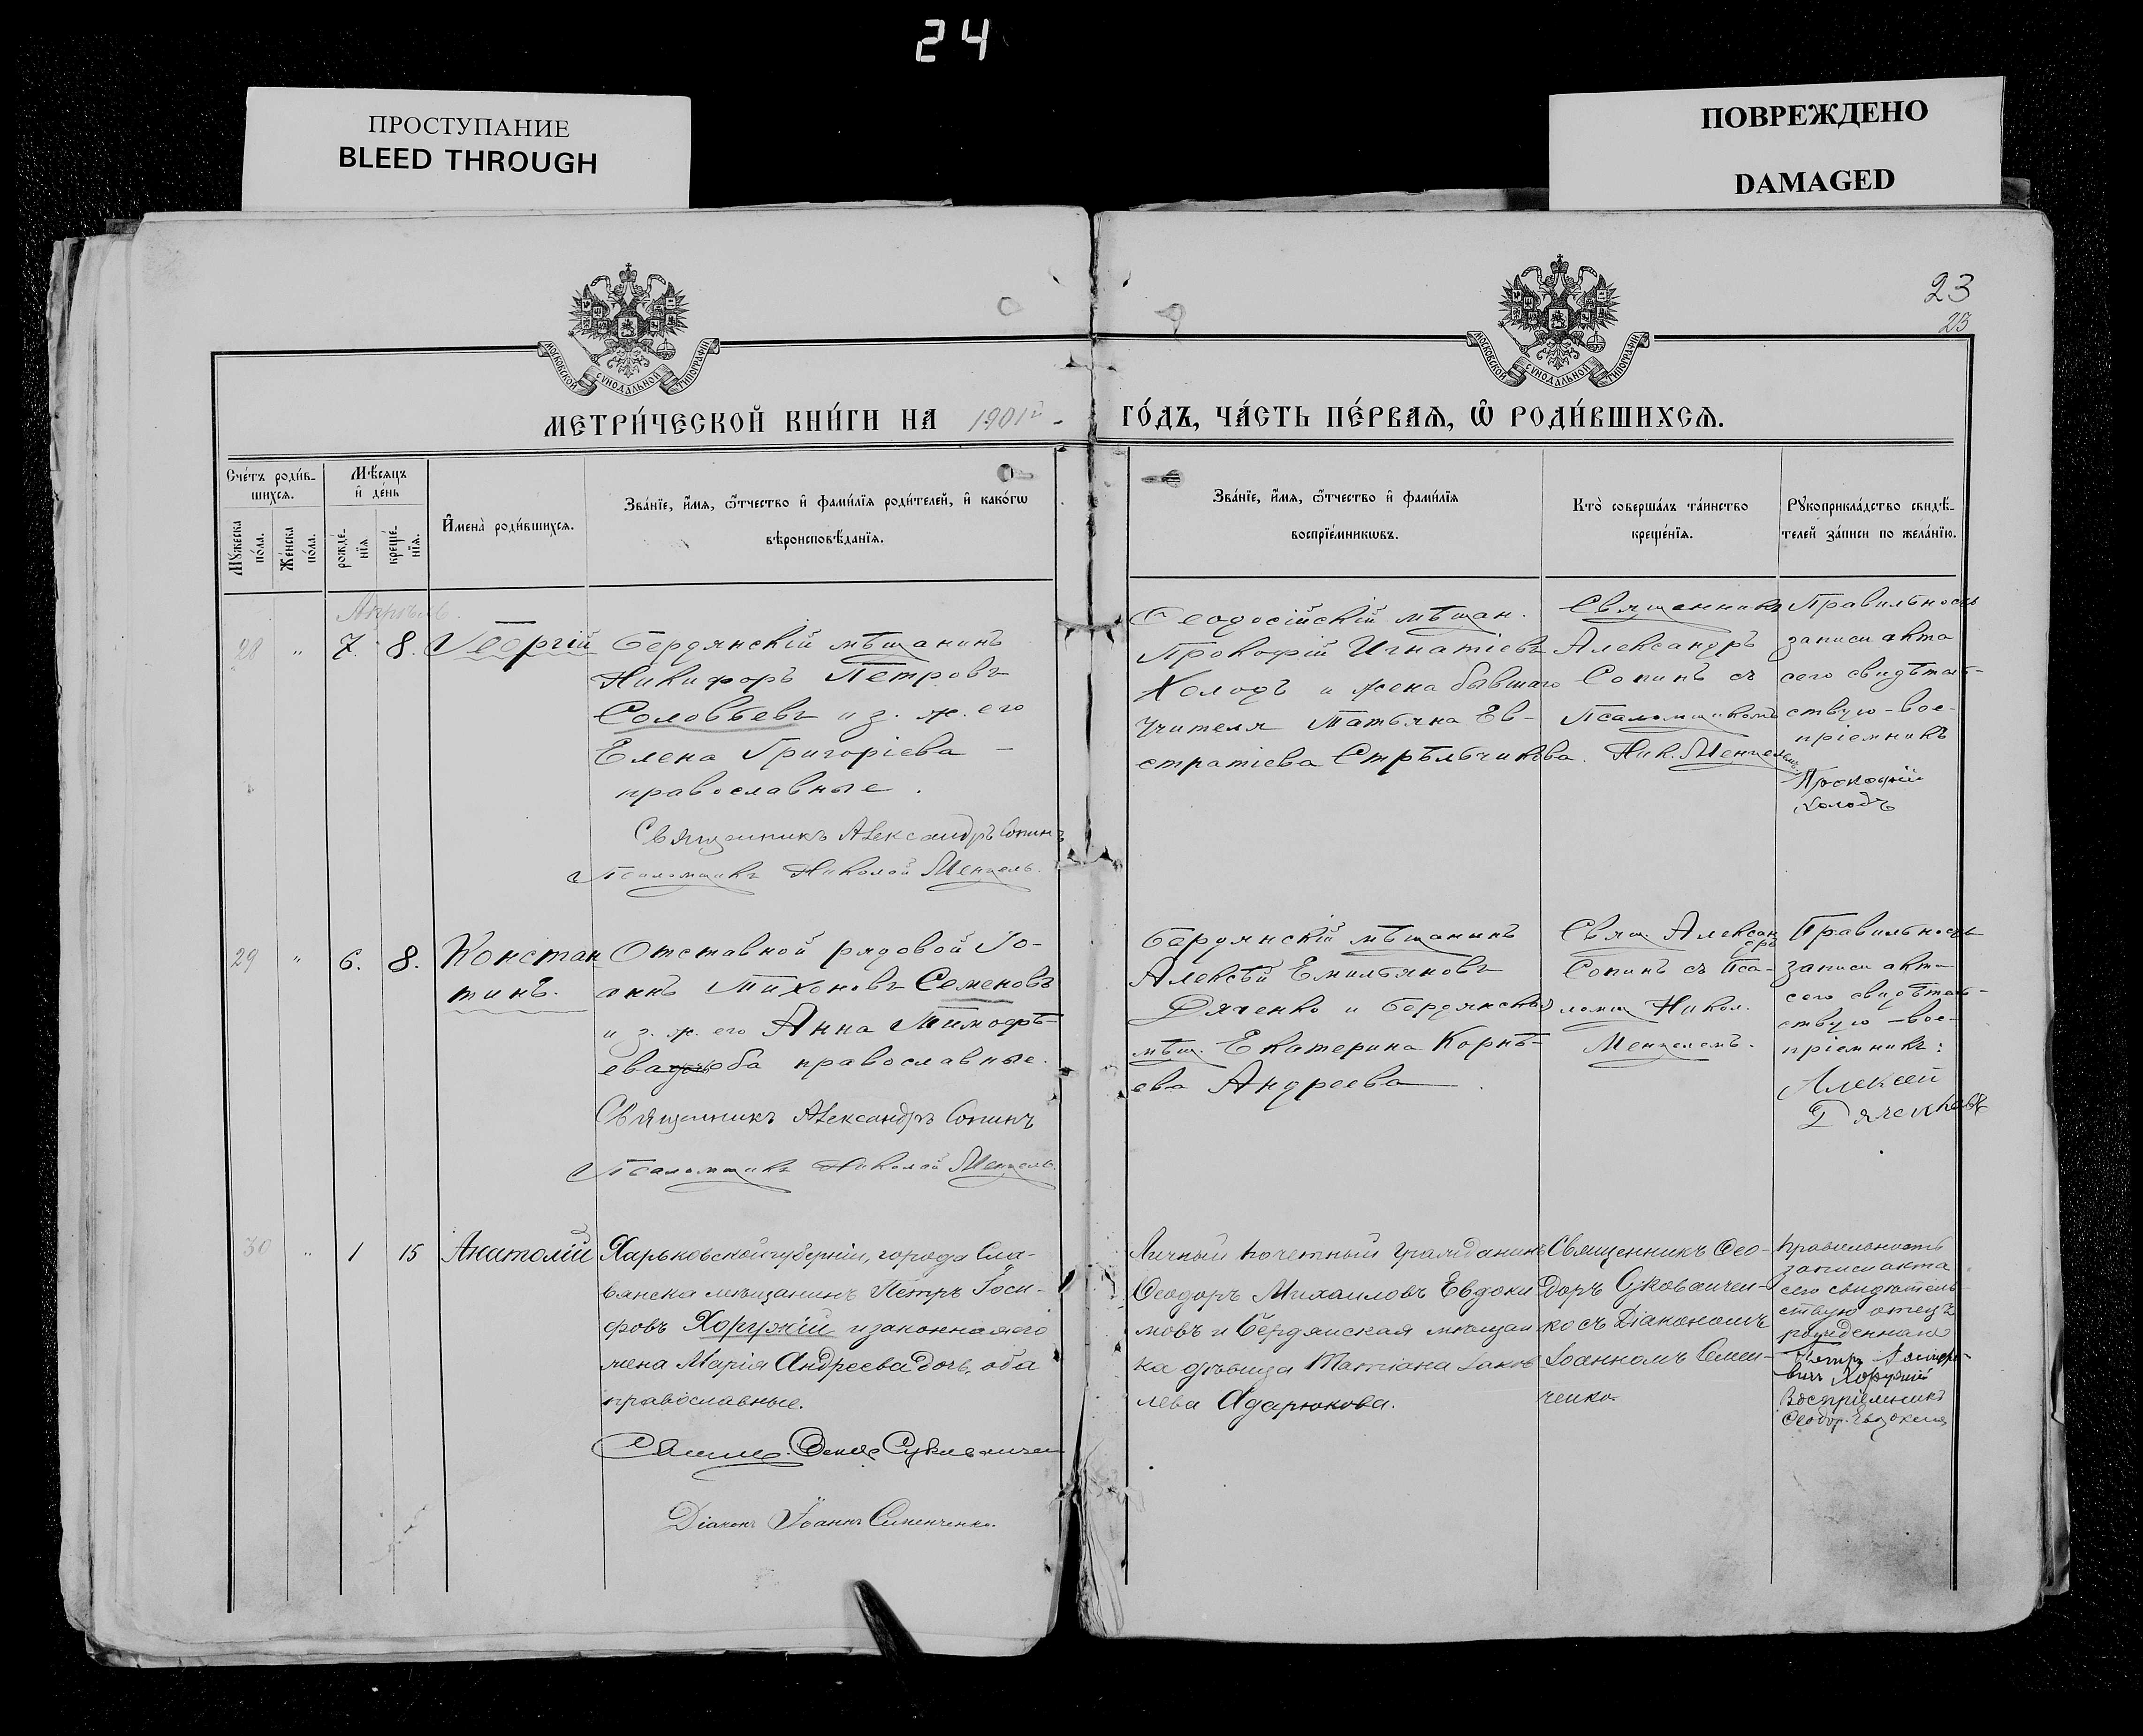 24
ПРОСТУПАНИЕ
BLEED THROUGH
ПОВРЕЖДЕНО
DAMAGED
23
23
МОСКОВСКОЙ СѴНОДАЛЬНОЙ ТИПОГРАФІИ
МОСКОВСКОЙ СѴНОДАЛЬНОЙ ТИПОГРАФІИ
МЕТРИ́ЧЕСКОЙ КНИ́ГИ НА 1901й
ГО́ДЪ, ЧА́СТЬ ПЕ́РВАѦ, Ѽ РОДИ́ВШИХСѦ.
Сче́тъ роди́в-
шихсѧ.
Мꙋжеска
по́ла.
Же́нска
по́ла.
Мѣ́сѧцъ
и҆ де́нь
рожде́-
нїѧ
креще́-
нїѧ.
И҆мена̀ роди́вшихсѧ.
Зва́нїе, и҆́мѧ, ѻ҆́тчество и҆ фами́лїѧ роди́телей, и҆ како́гѡ
вѣроисповѣ́данїѧ.
Зва́нїе, и҆́мѧ, ѻ҆́тчество и҆ фами́лїѧ
воспрїе́мникѡвъ.
Кто̀ соверша́лъ та́инство
креще́нїѧ.
Рꙋкоприкла́дство свидѣ́-
телей за́писи по жела́нїю.
Апрѣль.
28 " 7. 8. Георгій
Бердянскій мѣщанинъ
Никифоръ Петровъ
Соловьевъ и з. ж. его
Елена Григоріева –
православные.
Священникъ Александръ Сопинъ
Псаломщикъ Николай Менцель.
Ѳеодосійскій мѣщан.
Прокофій Игнатіевъ
Холодъ и жена бывшаго
учителя Татьяна Ев-
стратіева Стрѣльчикова.
Священникъ
Александръ
Сопинъ съ
Псаломщикомъ
Ник. Менцелемъ.
Правильность
записи акта
сего свидѣтель-
ствую – вос-
пріемникъ
Прокофій
Холодъ
29 " 6. 8. Констан
тинъ.
Отставной рядовой Іо-
аннъ Тихоновъ Семеновъ
и з. ж. его Анна Тимофѣ-
ева оба православные.
Священникъ Александръ Сопинъ
Псаломщикъ Николай Менцель.
Бердянскій мѣщанинъ
Алексѣй Емильяновъ
Дяченко и Бердянская
мѣщ. Екатерина Корнѣ-
ева Андреева
Свящ. Алексан
дръ
Сопинъ съ Пса-
ломщ. Никол.
Менцелемъ.
Правильность
записи акта
сего свидѣтель-
ствую – вос-
пріемникъ:
Алексей
30 " 1 15 Анатолій
Харьковской губерніи, города Сла-
вянска мѣщанинъ Петръ Іоси-
фовъ Хоружій и законная его
жена Марія Андреева дочь, оба
православные.
Діаконъ Іоаннъ Семенченко.
Личный почетный гражданинъ
Ѳеодоръ Михаиловъ Евдоки
мовъ и Бердянская мѣщан
ка дѣвица Татіана Іаков
лева Адарюкова.
Священникъ Ѳео-
доръ
ко съ Діакономъ
Іоанномъ Семен-
ченко.
Правильность
записи акта
сего свидѣтель
ствую отецъ
рожденнаго
Петръ Іосифо-
вичъ Хоружій
Воспріемникъ
Ѳеодор. Евдокимо